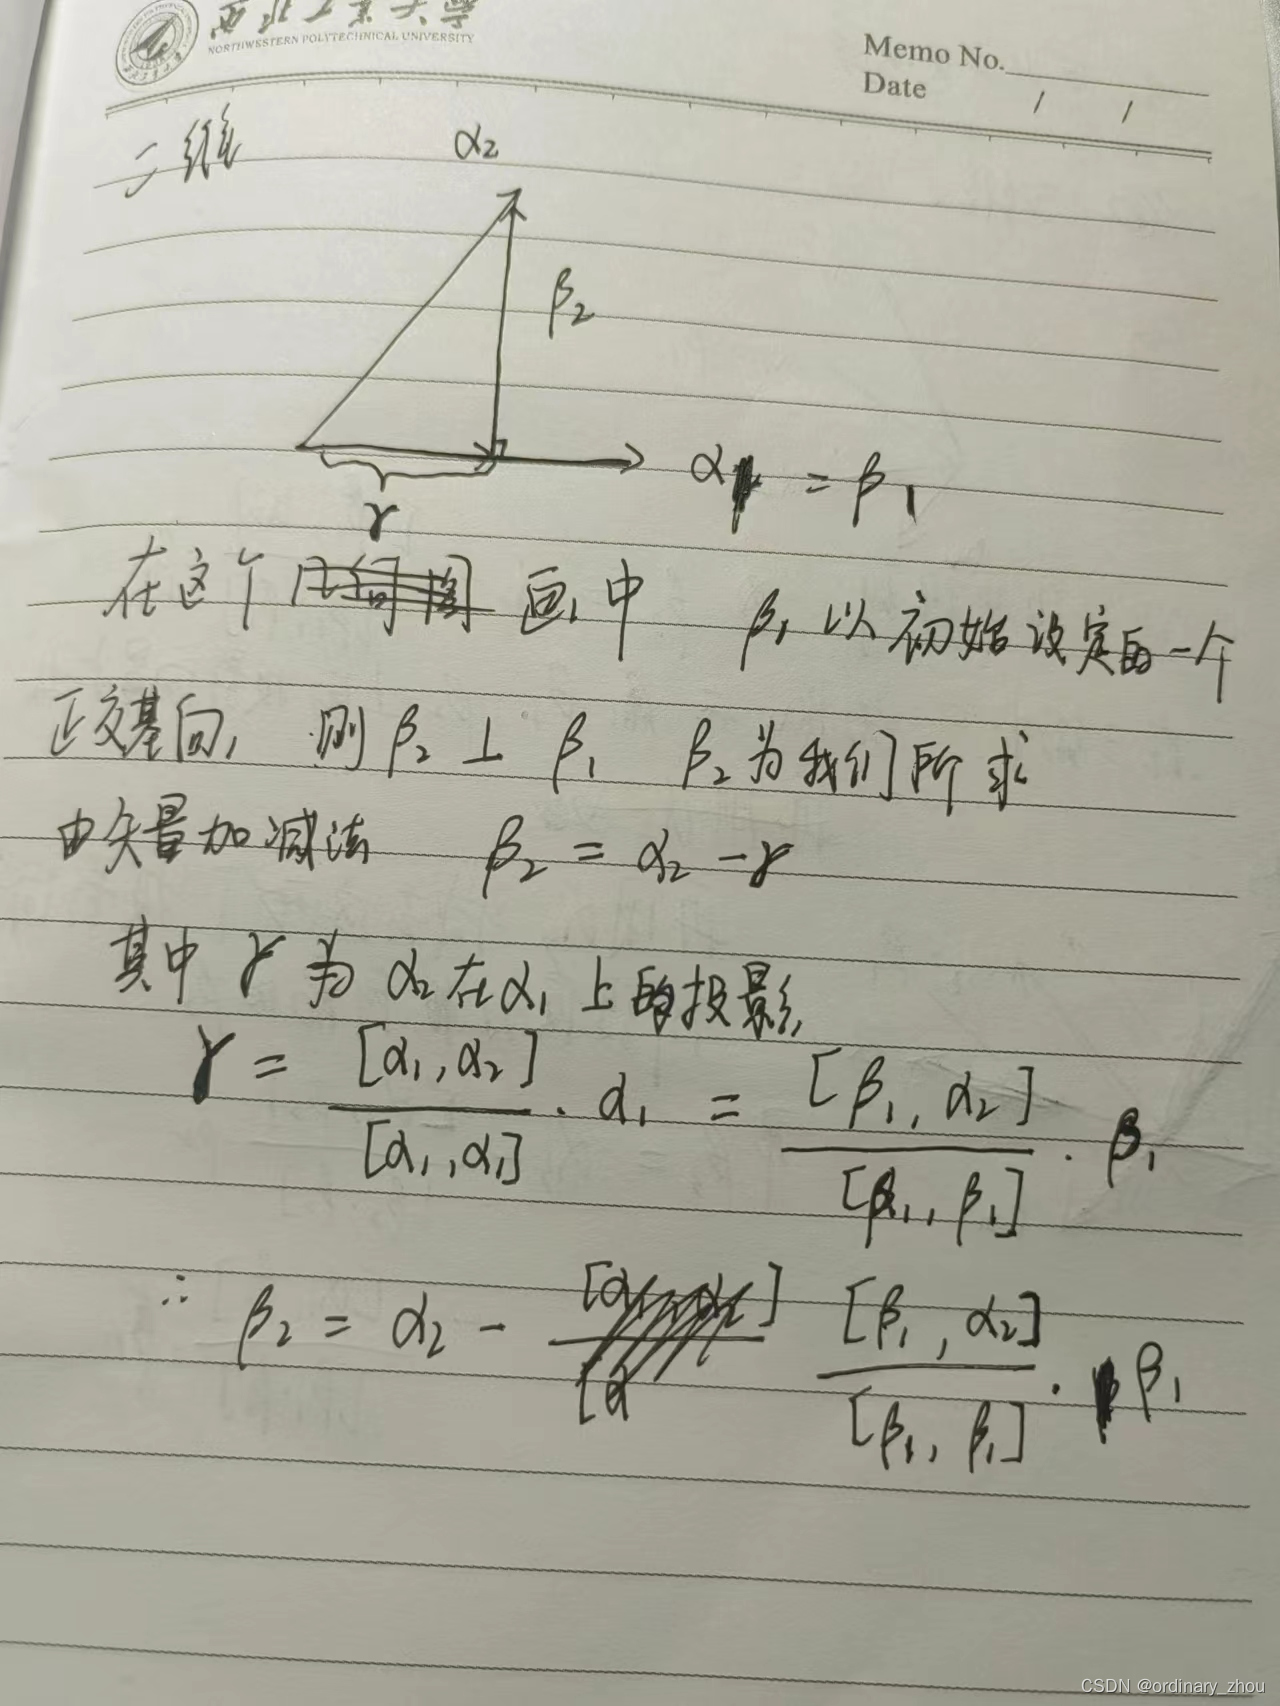 NORTHWESTERN POLYTECHNICAL UNIVERSITY
Memo No.
Date / /
二维
α₂
β₂
α₁ = β₁
γ
在这个 画中 β₁ 以初始设定的一个
正交基向, 则 β₂ ⊥ β₁ β₂为我们所求
由矢量加减法 β₂ = α₂ - γ
其中 γ 为 α₂ 在 α₁ 上的投影,
γ = [α₁, α₂] / [α₁, α₁] · α₁ = [β₁, α₂] / [β₁, β₁] · β₁
∴ β₂ = α₂ - [β₁, α₂] / [β₁, β₁] · β₁
CSDN @ordinary_zhou